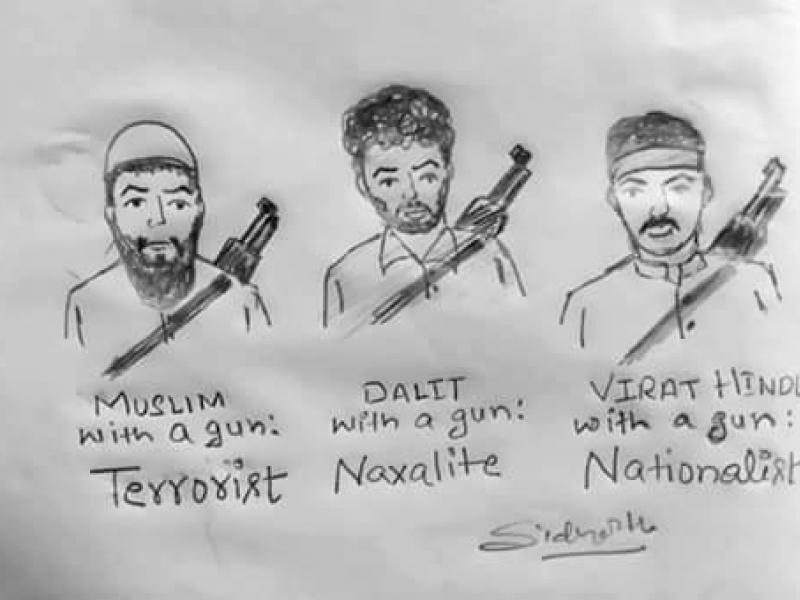 MUSLIM
with a gun:
Terrorist
DALIT
with a gun:
Naxalite
VIRAT HINDU
with a gun:
Nationalist